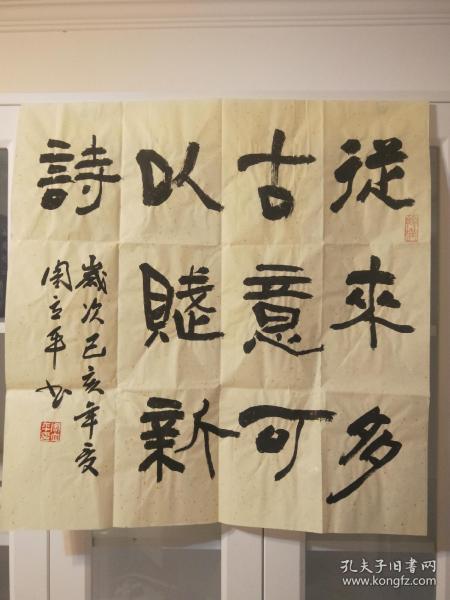 從來多
古意可
以賦新
詩
歲次己亥年夏
周立平书
孔夫子旧书网
www.kongfz.com